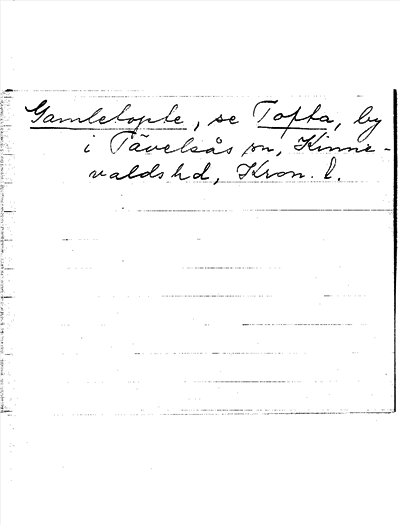 Gamletopte, se Tofta, by
i Tävelsås sn, Kinne-
valds hd, Kron. l.